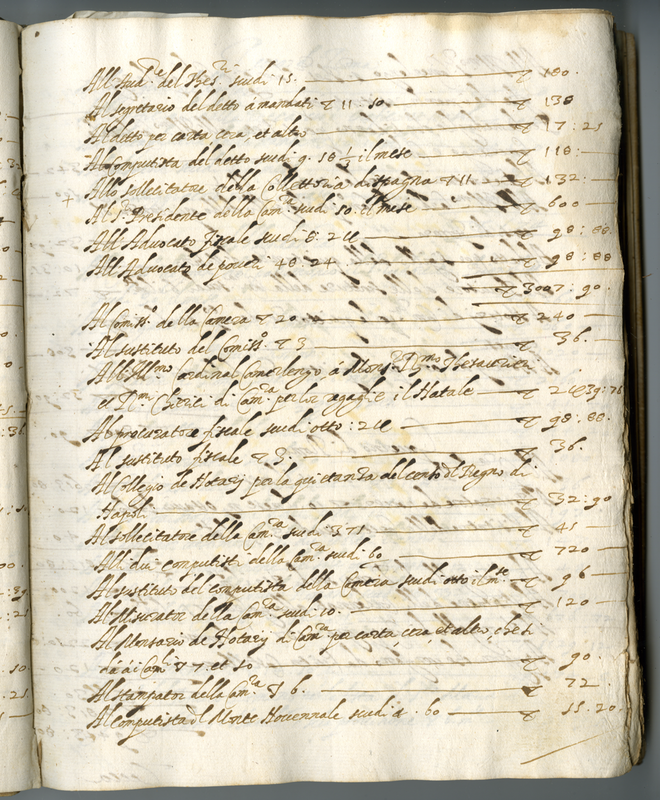 All' Aud.re del Thes.ri scudi 15. ▽ 180.
Al segretario del detto à mandati ▽ 11 : 50 ▽ 138
Al detto per carta cera et altro ▽ 17 : 25
Al Computista del detto scudi 9. 58 1/2 il mese ▽ 118 :
Allo sollecitatore della Collettoria di spagna ▽ 11 ▽ 132.
+ Al S.r Presidente della Cam.a scudi 50. il mese ▽ 600
All Advocato fiscale scudi 8 : 24 ▽ 98 : 88.
All Advocato de poveri 48 : 24 ▽ 98 : 88
▽ 3007 : 90.
Al Comiss.o della Camera ▽ 20. ▽ 240
Al sustituto del Comiss.o ▽ 3 ▽ 36.
All Ill.mo Cardinal Camerlengo à Mons.r R.mo Thesaurier
et R.mi Chierici di Cam.a per lor regaglie il Natale ▽ 2439 : 76
Al procuratore fiscale scudi otto : 24 ▽ 98 : 88.
Al sustituto fiscale ▽ 3. ▽ 36.
Al Collegio de Notarij per la quietanza del censo d'l Regno di
Napoli ▽ 32 : 90
Al sollecitatore della Cam.a scudi 3 75 ▽ 45
Alli dui computisti della Cam.a scudi 60 ▽ 720
Al sustituto del computista della Camera scudi otto il m.se ▽ 96
Al Misurator della Cam.a scudi 10. ▽ 120
Al Mensario de Notarij di Cam.a per carta cera, et altro, che si
dà ai Cam.li ▽ 7. et 50 ▽ 90.
Al stampator della Cam.a ▽ 6. ▽ 72
Al computista d'l Monte Novennale scudi 4 . 60 ▽ 55 : 20.